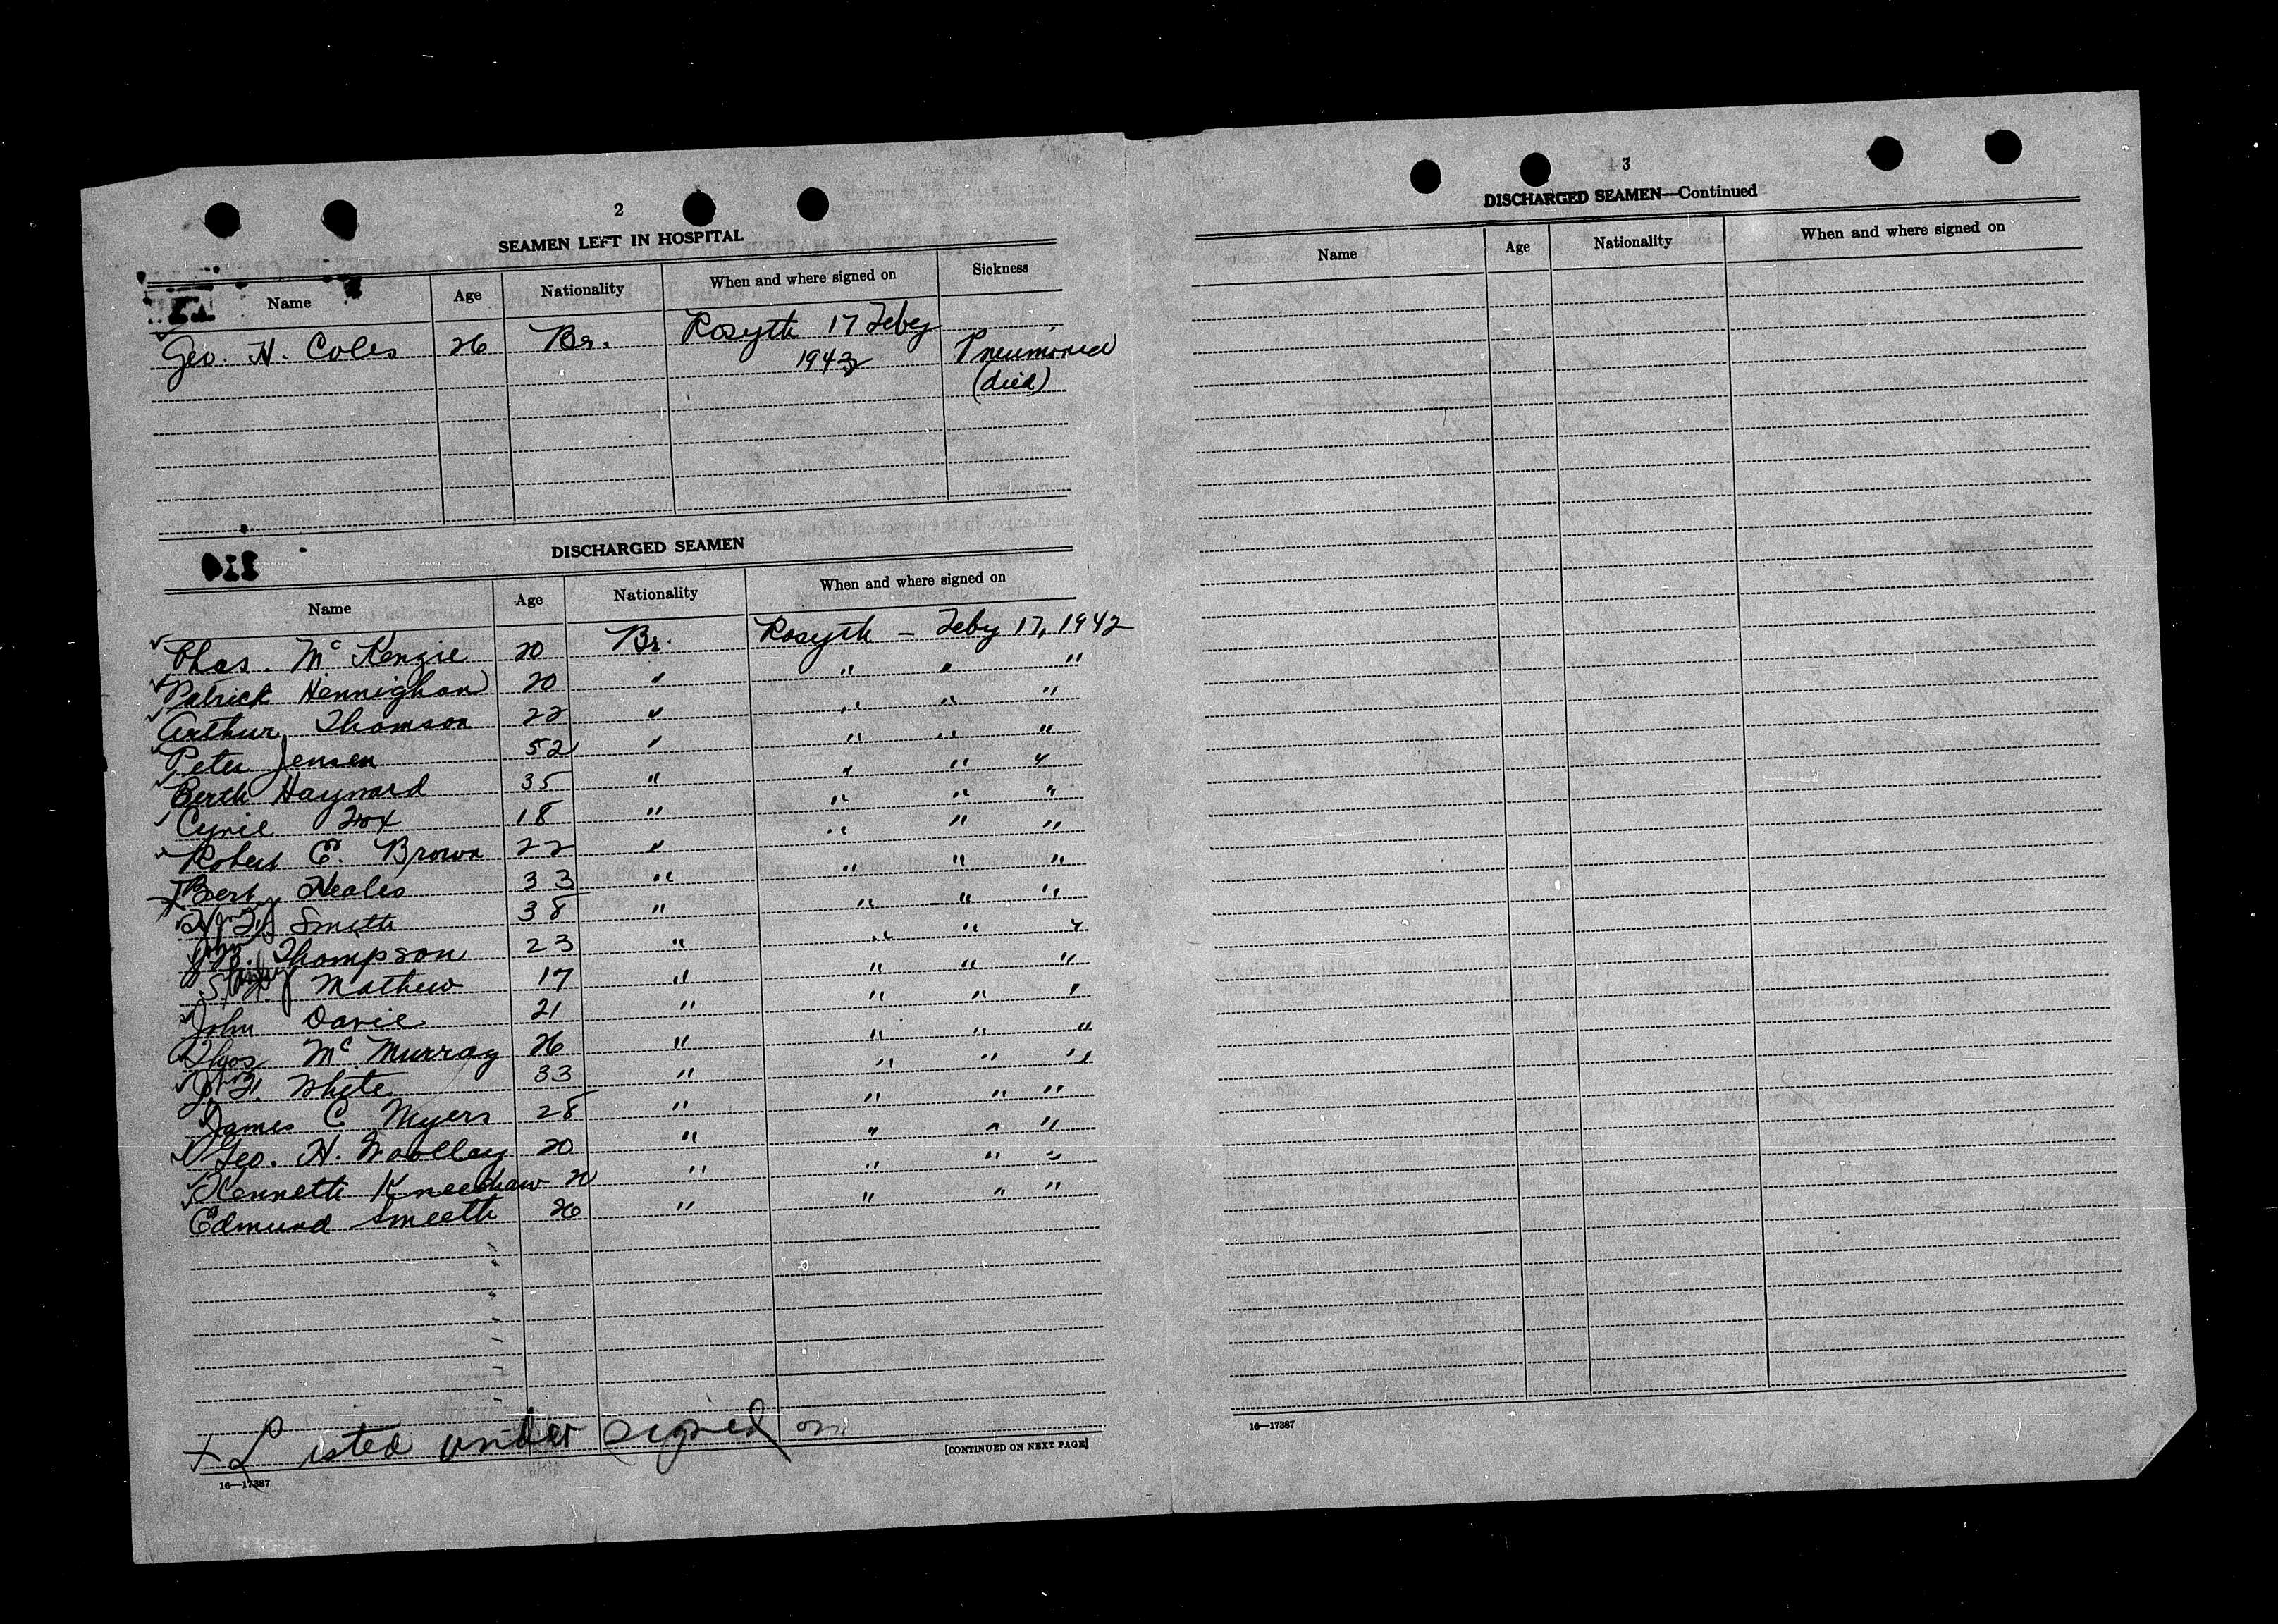 2
SEAMEN LEFT IN HOSPITAL
Name Age Nationality When and where signed on Sickness
Geo. H. Coles 26 Br. Rosyth 17 Feby 1942 Pneumonia (died)
DISCHARGED SEAMEN
Name Age Nationality When and where signed on
Chas. McKenzie 20 Br. Rosyth — Feby 17, 1942
Patrick Hennighan 20 " " " "
Arthur Thomson 22 " " " "
Peter Jensen 52 " " " "
Berth Hayward 35 " " " "
Cyril Fox 18 " " " "
Robert E. Brown 22 " " " "
Bert Heales 33 " " " "
Smith 38 " " " "
John Thompson 23 " " " "
Stanley Mathew 17 " " " "
John Davie 21 " " " "
Thos McMurray 26 " " " "
John F. White 33 " " " "
James C Myers 28 " " " "
Geo. H. Woollay 20 " " " "
Kenneth Kneeshaw 20 " " " "
Edmund Smeeth 26 " " " "
+ Listed under signed on
[CONTINUED ON NEXT PAGE]
16—17387
3
DISCHARGED SEAMEN—Continued
Name Age Nationality When and where signed on
16—17387